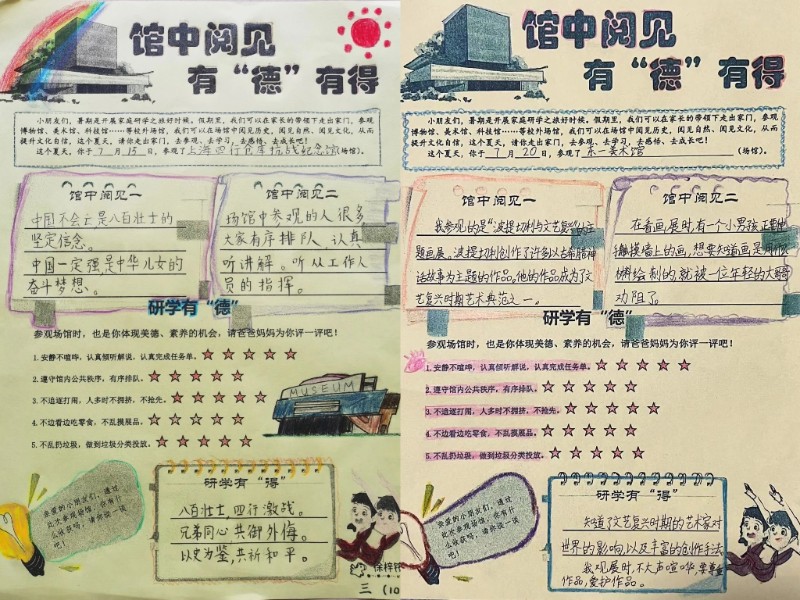 馆中阅见
有“德”有得
小朋友们，暑期是开展家庭研学之旅好时候，假期里，我们可以在家长的带领下走出家门，参观
博物馆、美术馆、科技馆……等校外场馆，我们可以在场馆中阅见历史，阅见自然，阅见文化，从而
提升文化自信，这个夏天，请你走出家门，去参观、去学习、去感悟、去成长吧！
这个夏天，你于7月15日，参观了上海四行仓库抗战纪念馆（场馆）。
馆中阅见一
中国不会亡是八百壮士的
坚定信念。
中国一定强，是中华儿女的
奋斗梦想。
馆中阅见二
场馆中参观的人很多
大家有序排队、认真
听讲解。听从工作人
员的指挥。
研学有“德”
参观场馆时，也是你体现美德、素养的机会，请爸爸妈妈为你评一评吧！
1.安静不喧哗，认真倾听解说，认真完成任务单。
2.遵守馆内公共秩序，有序排队。
3.不追逐打闹，人多时不拥挤，不抢先。
4.不边看边吃零食，不乱摸展品。
5.不乱扔垃圾，做到垃圾分类投放。
MUSEUM
亲爱的小朋友们，通过
此次参观场馆，你有什
么收获吗，请你谈一谈
吧！
研学有“得”
八百壮士，四行激战。
兄弟同心，共御外侮。
以史为鉴，共祈和平。
三（10
馆中阅见
有“德”有得
小朋友们，暑期是开展家庭研学之旅好时候，假期里，我们可以在家长的带领下走出家门，参观
博物馆、美术馆、科技馆……等校外场馆，我们可以在场馆中阅见历史，阅见自然，阅见文化，从而
提升文化自信，这个夏天，请你走出家门，去参观、去学习、去感悟、去成长吧！
这个夏天，你于7月20日，参观了东一美术馆（场馆）。
馆中阅见一
我参观的是“波提切利与文艺复兴”的主
题画展、波提切利创作了许多以古希腊神
话故事为主题的作品。他的作品成为了文
艺复兴时期艺术典范之一。
馆中阅见二
在看画展时，有一个小男孩正要伸
触摸墙上的画，想要知道画是用什么
材料绘制的，就被一位年轻的大哥哥
劝阻了。
研学有“德”
参观场馆时，也是你体现美德、素养的机会，请爸爸妈妈为你评一评吧！
1.安静不喧哗，认真倾听解说，认真完成任务单。
2.遵守馆内公共秩序，有序排队。
3.不追逐打闹，人多时不拥挤，不抢先。
4.不边看边吃零食，不乱摸展品。
5.不乱扔垃圾，做到垃圾分类投放。
亲爱的小朋友们，通过
此次参观场馆，你有什
么收获吗，请你谈一谈
吧！
研学有“得”
知道了文艺复兴时期的艺术家对
世界的影响，以及丰富的创作手法
我观展时，不大声喧哗，要尊重
作品，爱护作品。